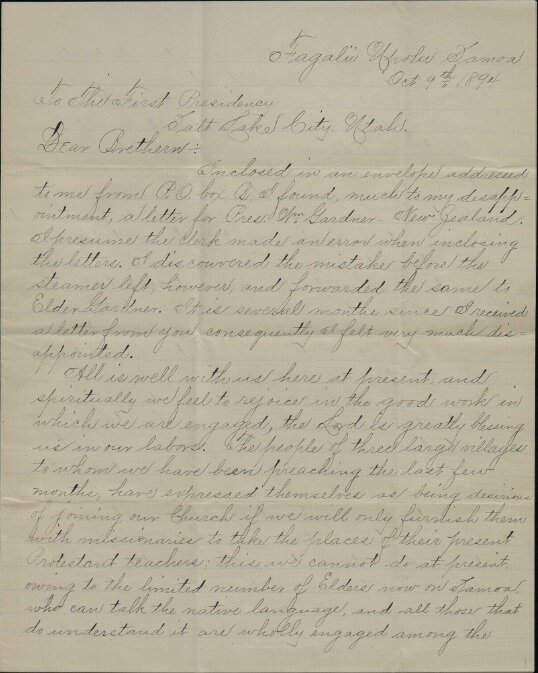 Fagalii Upolu Samoa
Oct. 9th 1894
To The First Presidency
Salt Lake City Utah.
Dear Brethern:
Enclosed in an envelope addressed
to me from P.O. box B, I found, much to my disapp=
ointment, a letter for Pres. Wm. Gardner New Zealand.
I presume the clerk made an error when inclosing
the letters. I discouvered the mistake before the
steamer left, however, and forwarded the same to
Elder Gardner. It is several months since I received
a letter from you consequently I felt very much dis=
appointed.
All is well with us here at present, and
spiritually we feel to rejoice in the good work in
which we are engaged, the Lord is greatly blessing
us in our labors. The people of three large villages
to whom we have been preaching the last few
months, have expressed themselves as being desirious
of joining our Church if we will only furnish them
with missionaries to take the places of their present
Protestant teachers; this we cannot do at present,
owing to the limited number of Elders now on Samoa
who can talk the native language, and all those that
do understand it are wholly engaged among the